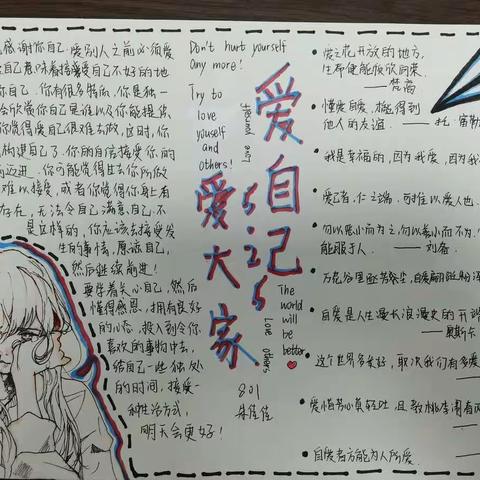 感谢你自己.爱别人之前必须爱
自己意味着接受自己不好的地
你自己.你有很多特质.你是独一
会欣赏你自己是谁以及你能提供
你觉得爱自己很难去做,这时,你
构建自己了.你的自信接受你的
你可能觉得过去你所做
难以接受,或者你觉得你身上有
存在,无法令自己满意.自己.不
是这样的,你应该去接受发
生的事情,原谅自己,
然后继续前进!
要学着关心自己,然后
懂得感恩,拥有良好
的心态,投入到令你
喜欢的事物中去,
给自己一些独处
的时间,接受一
种生活方式,
明天会更好!
Don't hurt yourself
any more!
Try to
love
youself
and
others!
爱自己
爱大家
5.25
Love yourself
Love others.
The
world
will
be
better.
801
爱之花开放的地方,
生命便能欣欣向荣.
——梵高
懂爱自爱,才能得到
他人的友谊.
我是幸福的,因为我爱,因为我
爱己者,仁之端,可推以爱人也.
勿以恶小而为之,勿以善小而不为.
能服于人. ——刘备
自爱是人生漫长浪漫史的开端
这个世界多美好,取决我们有多爱
自爱者方能为人所爱.